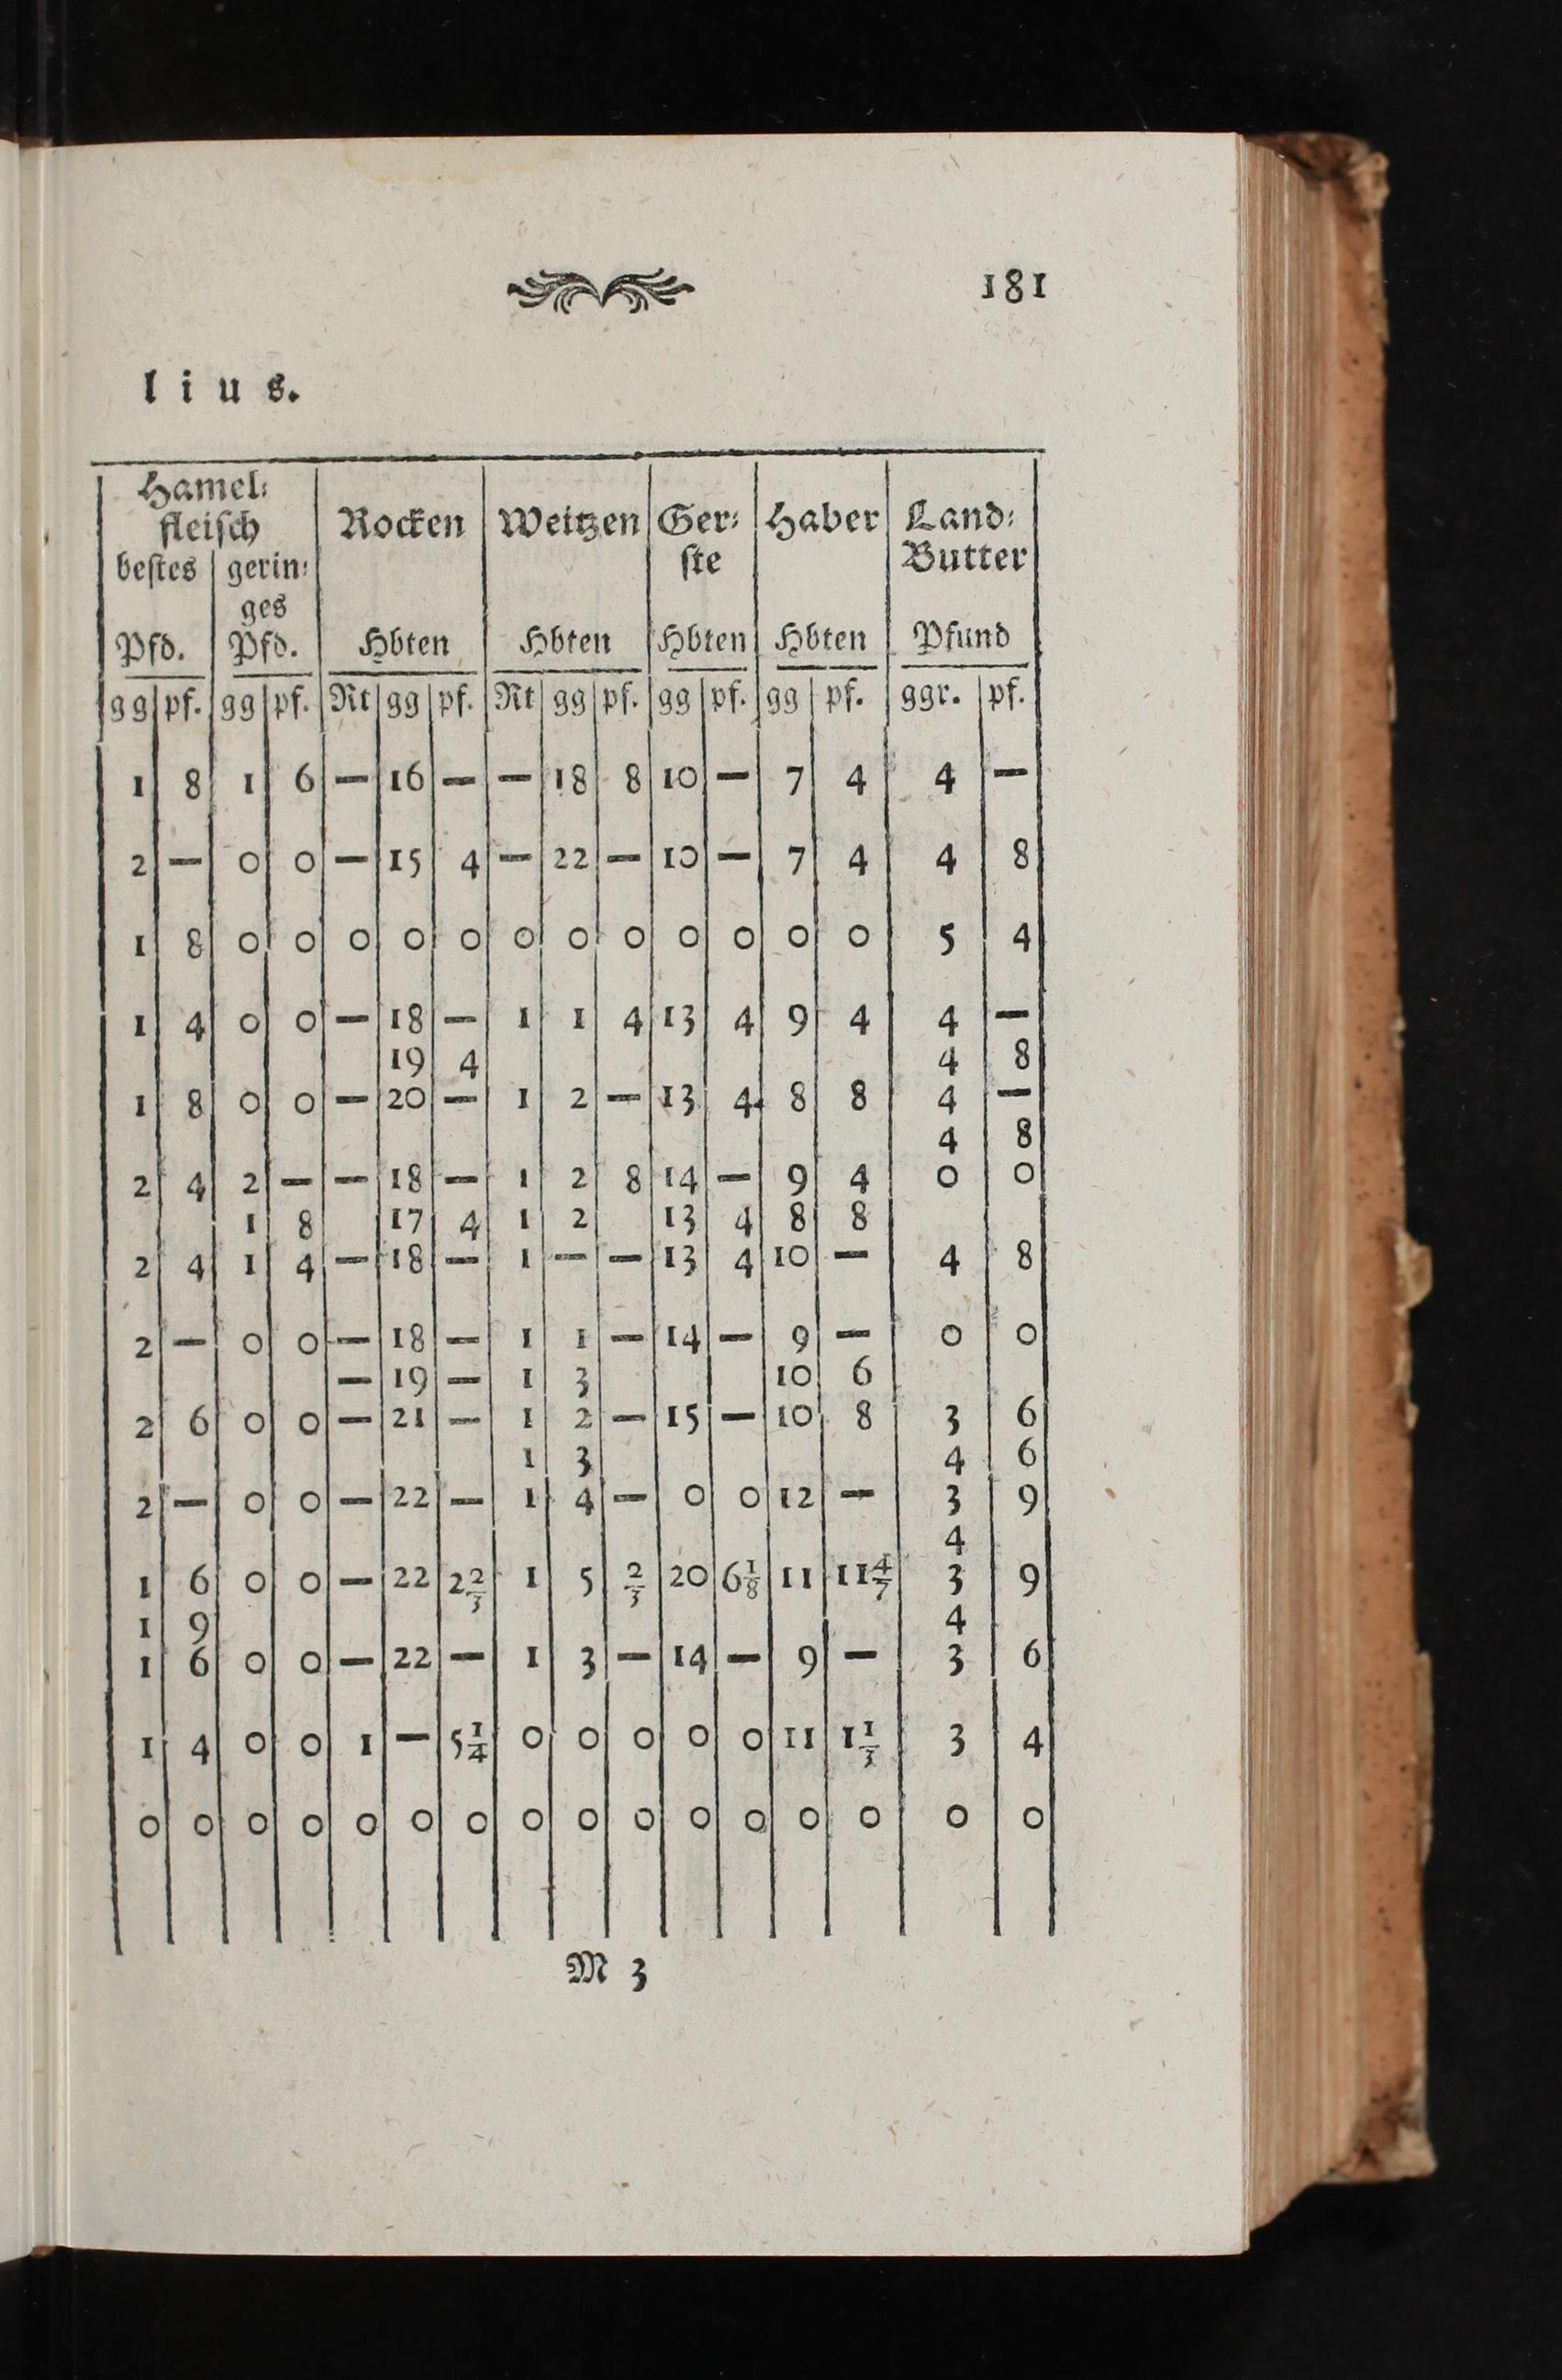 181
lius.
Hamel⸗
fleiſch Rocken Weitzen Ger⸗ Haber Land⸗
beſtes gerin⸗ ſte Butter
ges
Pfd. Pfd. Hbten Hbten Hbten Hbten Pfund
gg pf. gg pf. Rt gg pf. Rt gg pf. gg pf. gg pf. ggr. pf.
1 8 1 6 — 16 — — 18 8 10 — 7 4 4 —
2 — 0 0 — 15 4 — 22 — 10 — 7 4 4 8
1 8 0 0 0 0 0 0 0 0 0 0 0 0 5 4
1 4 0 0 — 18 — 1 1 4 13 4 9 4 4 —
19 4 4 8
1 8 0 0 — 20 — 1 2 — 13 4 8 8 4 —
4 8
2 4 2 — — 18 — 1 2 8 14 — 9 4 0 0
1 8 17 4 1 2 13 4 8 8
2 4 1 4 — 18 — 1 — — 13 4 10 — 4 8
2 — 0 0 — 18 — 1 1 — 14 — 9 — 0 0
— 19 — 1 3 10 6
2 6 0 0 — 21 — 1 2 — 15 — 10 8 3 6
1 3 4 6
2 — 0 0 — 22 — 1 4 — 0 0 12 — 3 9
4
1 6 0 0 — 22 2⅔ 1 5 ⅔ 20 6⅛ 11 11 4/7 3 9
1 9 4
1 6 0 0 — 22 — 1 3 — 14 — 9 — 3 6
1 4 0 0 1 — 5¼ 0 0 0 0 0 11 1⅓ 3 4
0 0 0 0 0 0 0 0 0 0 0 0 0 0 0 0
M 3